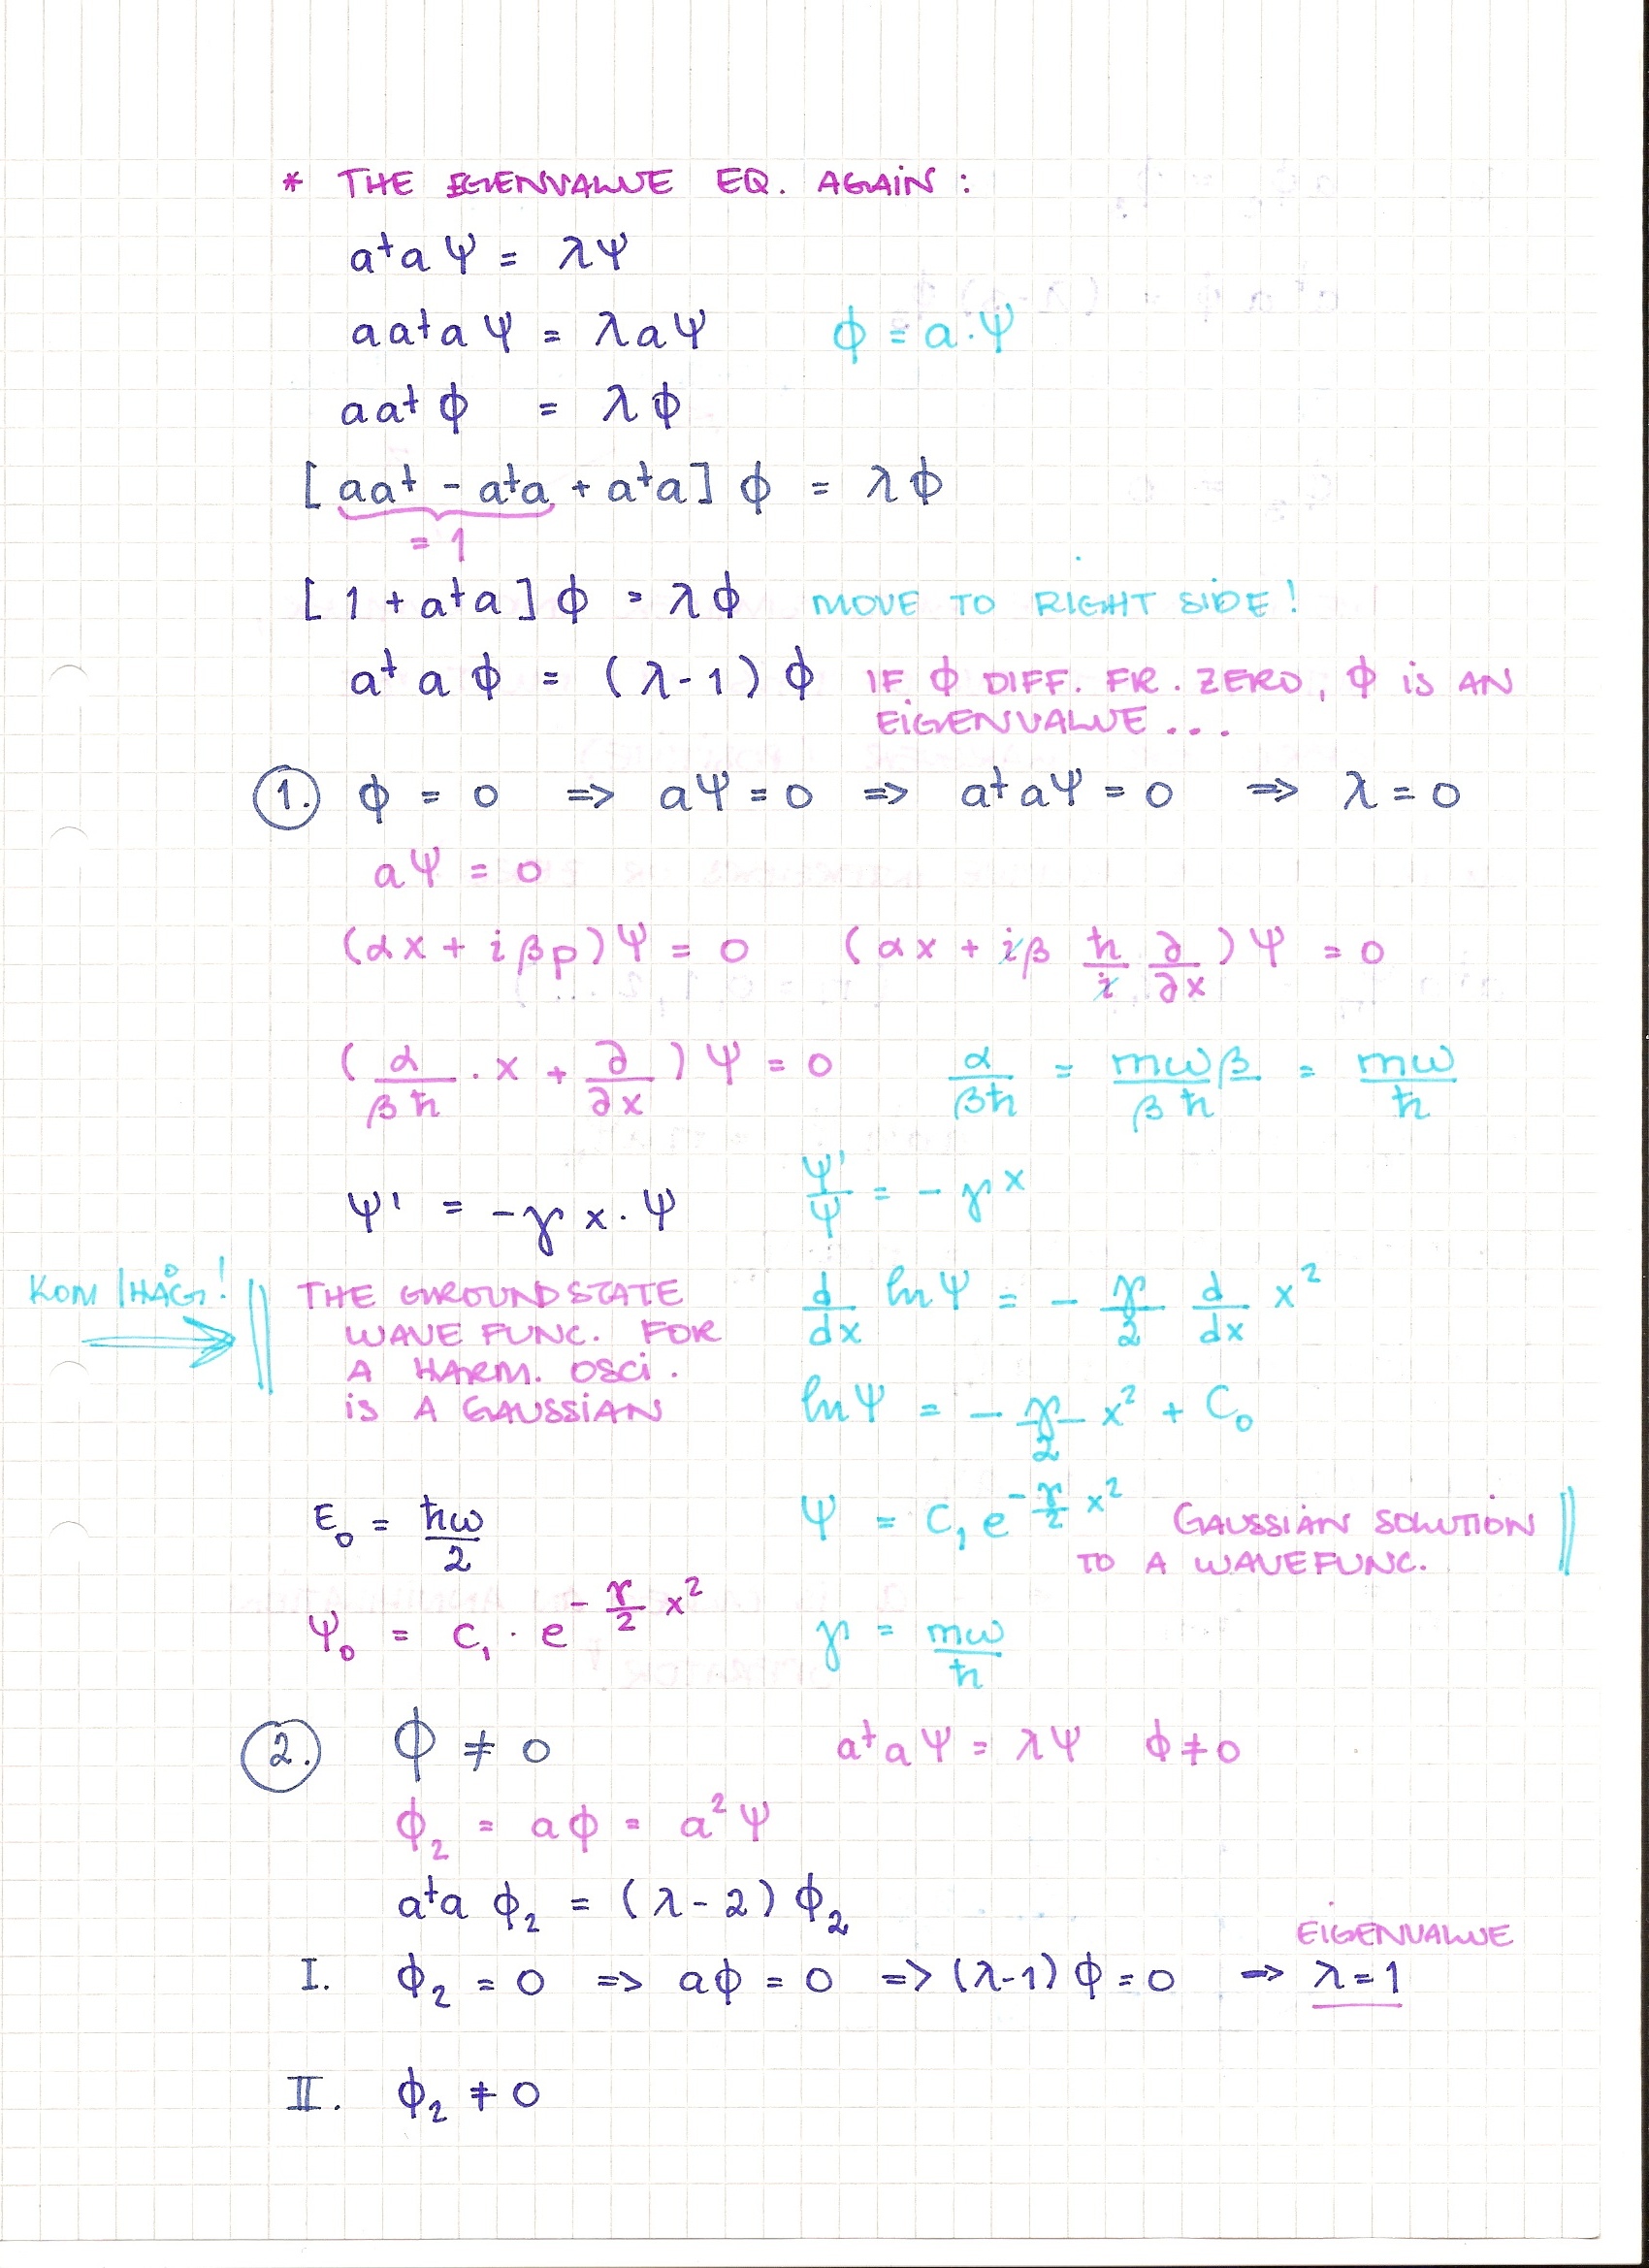 * THE EIGENVALUE EQ. AGAIN:
a†a Ψ = λΨ
a a†a Ψ = λ a Ψ    ϕ = a·Ψ
a a† ϕ = λ ϕ
[aa† - a†a + a†a] ϕ = λϕ
= 1
[1 + a†a] ϕ = λϕ    MOVE TO RIGHT SIDE!
a† a ϕ = (λ-1) ϕ    IF ϕ DIFF. FR. ZERO, ϕ IS AN
EIGENVALUE...
1. ϕ = 0 => aΨ = 0 => a†aΨ = 0 => λ = 0
aΨ = 0
(αx + iβp)Ψ = 0    (αx + iβ ħ/i ∂/∂x)Ψ = 0
(α/βħ · x + ∂/∂x)Ψ = 0    α/βħ = mωβ/βħ = mω/ħ
Ψ' = -γ x·Ψ    Ψ'/Ψ = -γx
KOM IHÅG!
THE GROUNDSTATE
WAVE FUNC. FOR
A HARM. OSCI.
IS A GAUSSIAN
d/dx ln Ψ = - γ/2 d/dx x²
ln Ψ = - γ/2 x² + C₀
E₀ = ħω/2    Ψ = C₁ e^(-γ/2 x²)    GAUSSIAN SOLUTION
TO A WAVEFUNC.
Ψ₀ = C₁ · e^(-γ/2 x²)    γ = mω/ħ
2. ϕ ≠ 0    a†aΨ = λΨ    ϕ ≠ 0
ϕ₂ = aϕ = a²Ψ
a†a ϕ₂ = (λ-2) ϕ₂
EIGENVALUE
I. ϕ₂ = 0 => aϕ = 0 => (λ-1)ϕ = 0 => λ = 1
II. ϕ₂ ≠ 0